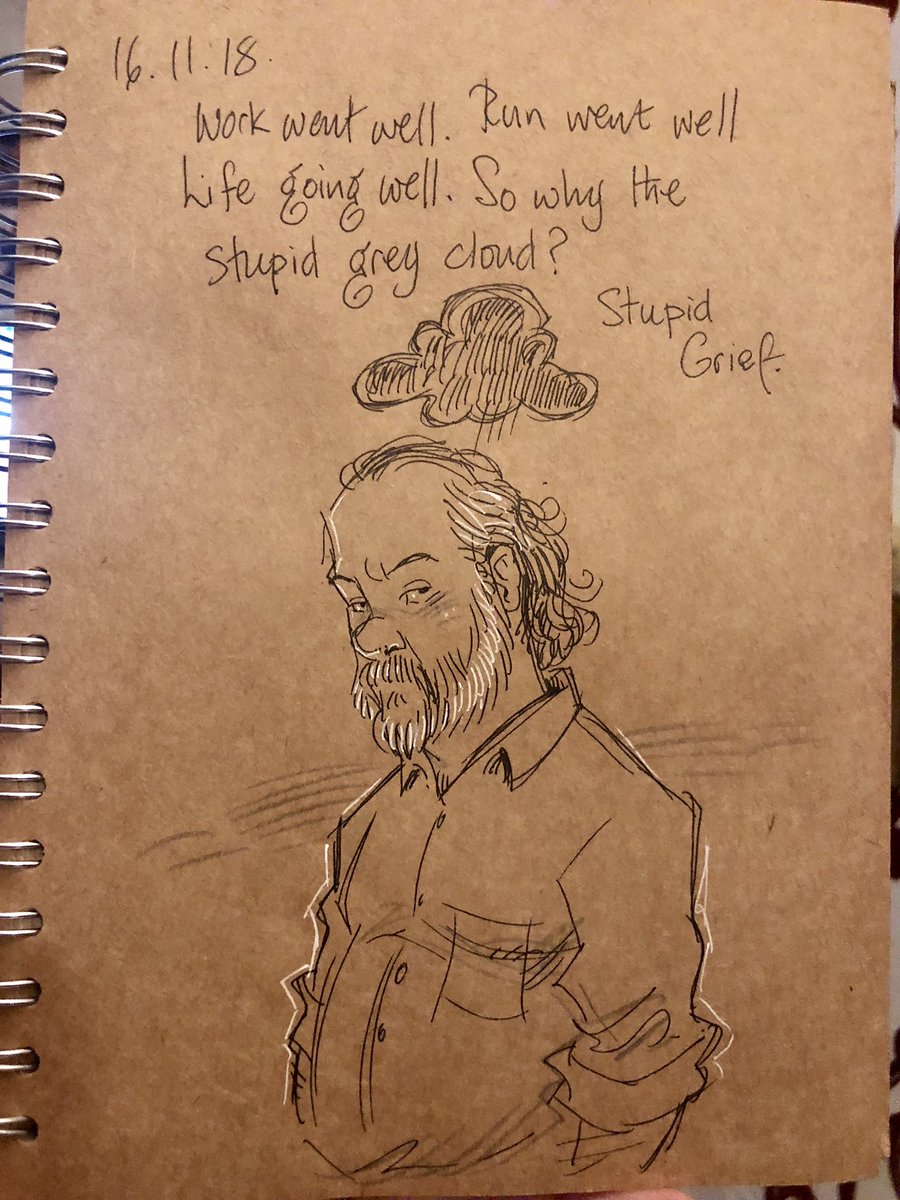 16.11.18.
Work went well. Run went well
Life going well. So why the
stupid grey cloud?
Stupid
Grief.